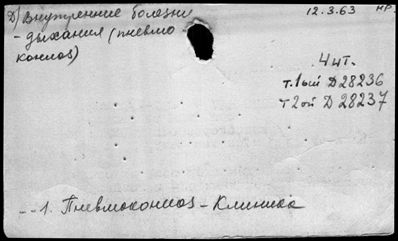 Д) Внутренние болезни
12.3.63
нр
- дыхания (пневмо
кониоз)
4 чт.
т. 1ый Д 28236
т 2ой Д 28237
-- 1. Пневмокониоз - Клиника